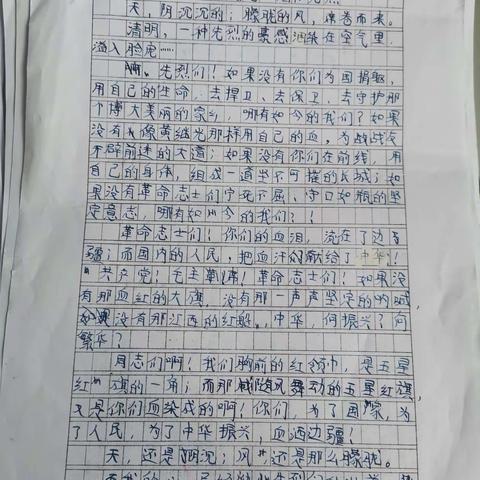 天，阴沉沉的；朦胧的风，席卷而来。
清明，一种先烈的哀感洒染在空气里，
溢入脸庞……
啊，先烈们！如果没有你们为国捐躯，
用自己的生命，去捍卫、去保卫、去守护那
个博大美丽的家乡，哪有如今的我们？如果
没有像黄继光那样用自己的血，为战战友
开辟前进的大道；如果没有你们在前线，用
自己的身体，组成一道坚不可摧的长城；如
果没有革命志士们宁死不屈、守口如瓶的坚
定意志，哪有如今的我们？！
革命志士们！你们的血泪，流在了边
疆；而国内的人民，把血汗献给了中华！
"共产党！毛主席！革命志士们！如果没
有那血红的大旗，没有那一声声坚定的呐喊，
如果没有那江西的红船，中华，何振兴？何
繁华？
同志们啊！我们胸前的红领巾，是五星
红旗的一角；而那随风舞动的五星红旗，
又是你们血染成的啊！你们，为了国家，为
了人民，为了中华振兴，血洒边疆！
天，还是阴沉；风还是那么朦胧。